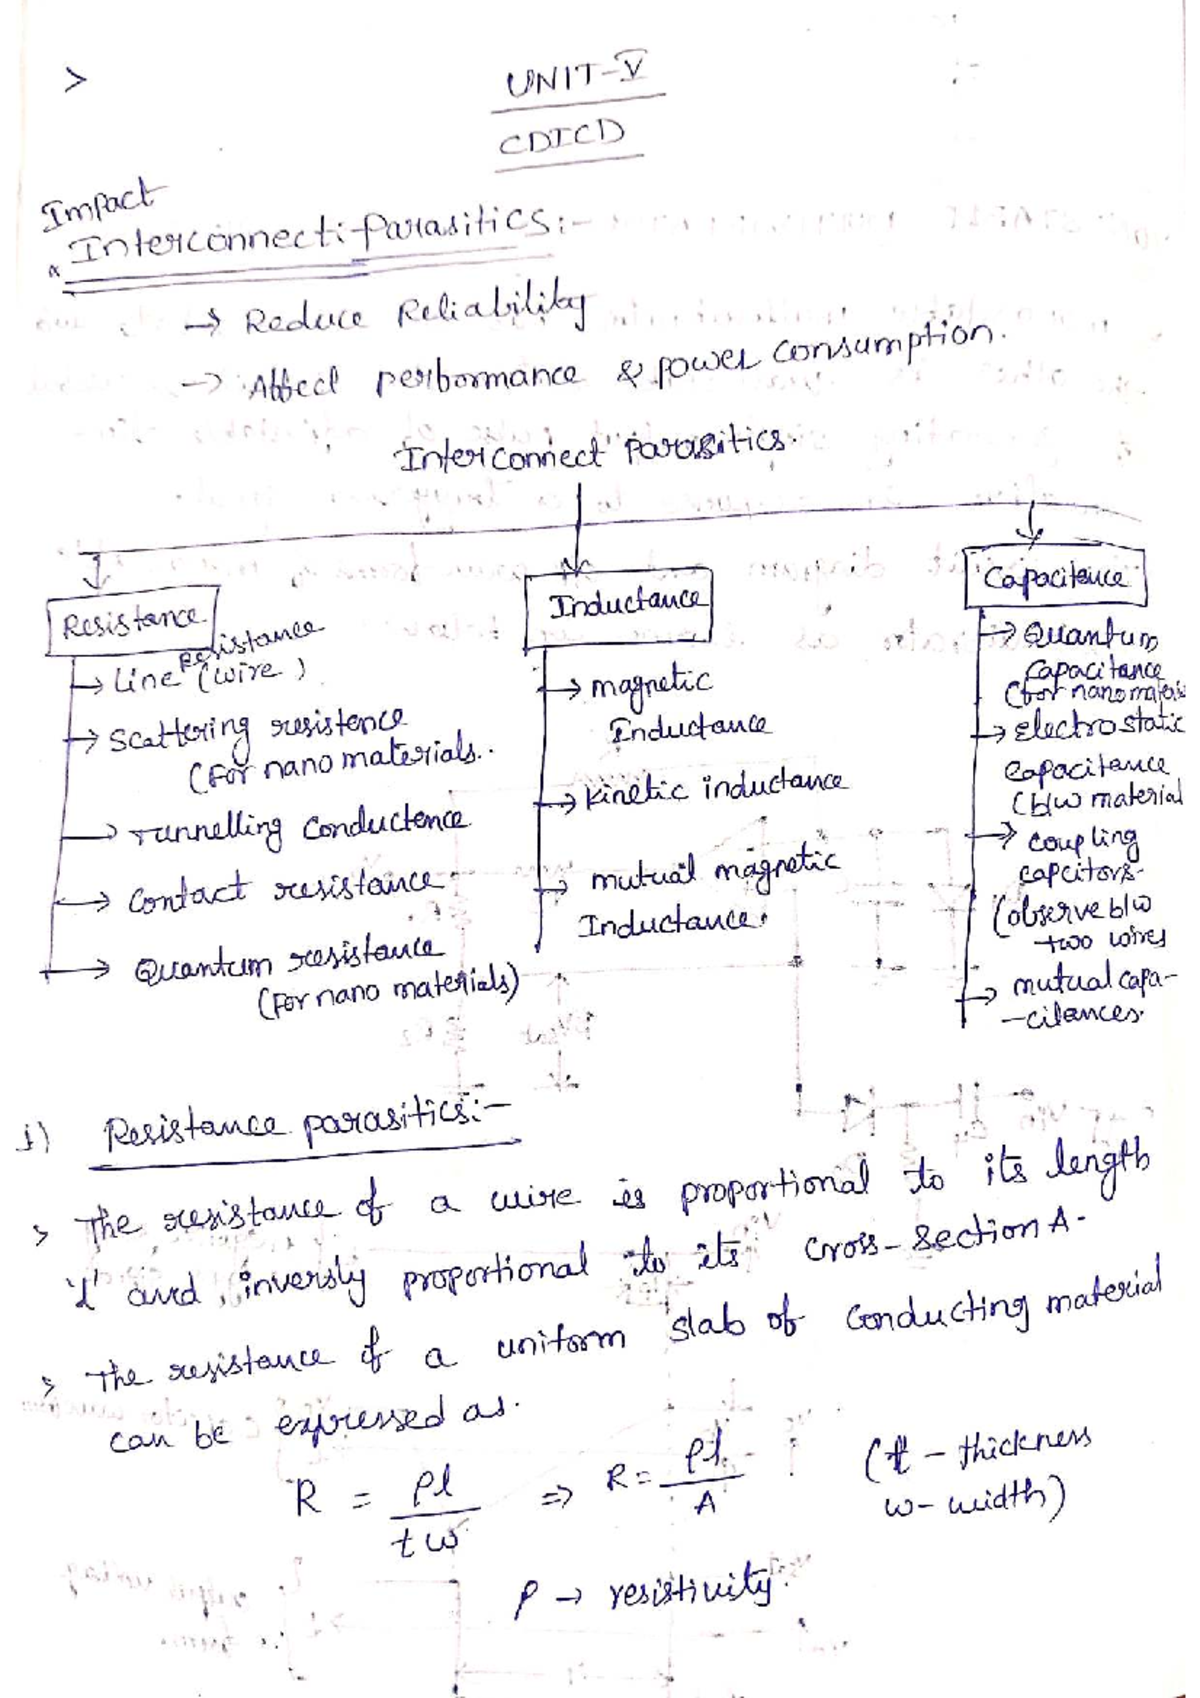 UNIT-V
CDICD
Impact
Interconnect:-Parasitics:-
→ Reduce Reliability
→ Affect performance & power consumption.
Interconnect Parasitics.
Resistance
→ Line resistance (wire)
→ Scattering resistence
(For nano materials.
→ Tunnelling Conductence
→ Contact resistance
→ Quantum resistance
(For nano materials)
Inductance
→ magnetic
Inductance
→ kinetic inductance
→ mutual magnetic
Inductance.
Capacitance
→ Quantum
Capacitance
(for nano materials
→ Electrostatic
Capacitance
(b/w material
→ Coupling
Capcitors.
(observe b/w
two wires
→ mutual capa-
-citances.
i) Resistance parasitics:-
> The resistance of a wire is proportional to its length
'l' and inversly proportional to its cross-section A.
> The resistance of a uniform slab of conducting material
can be expressed as.
R = ρl / tw ⇒ R = ρl / A (t - thickness
w - width)
ρ → resistivity.